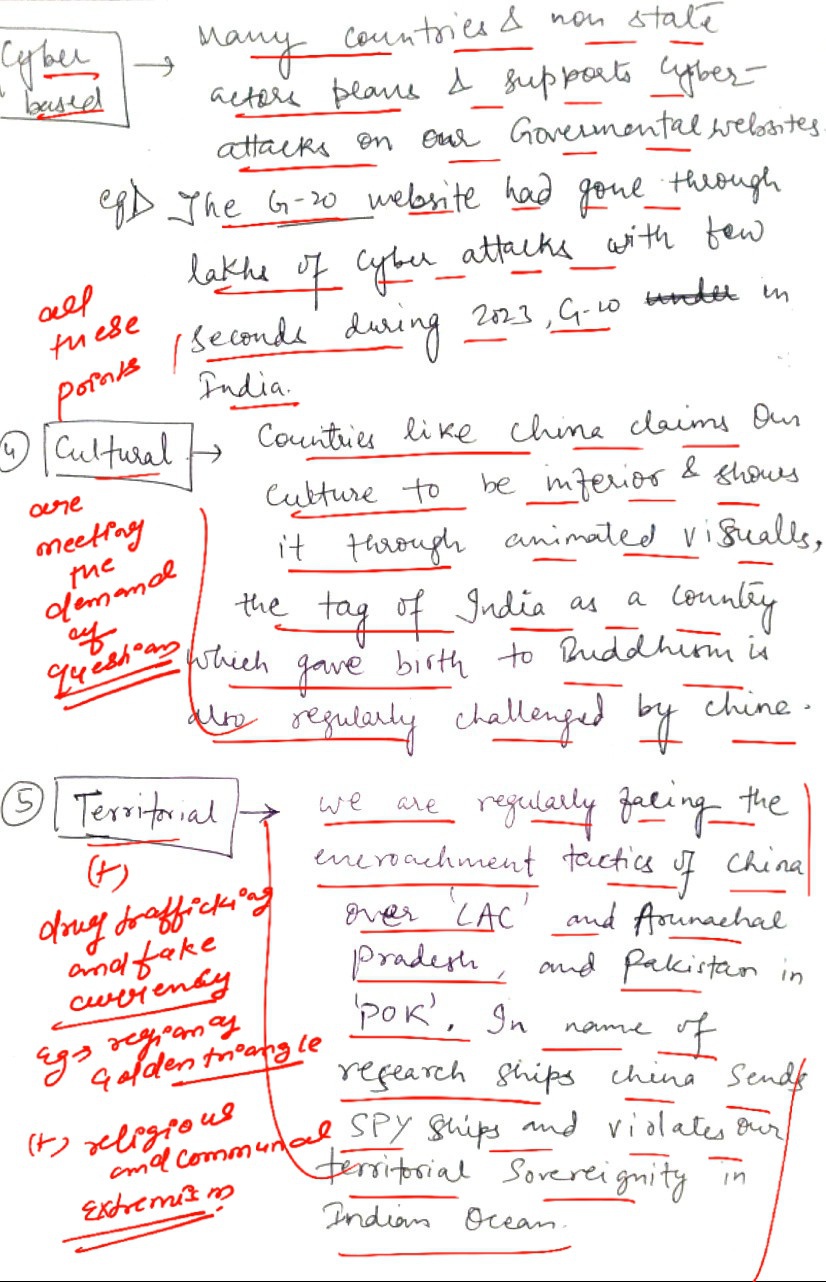 Cyber
based
→ Many countries & non state
actors plans & supports Cyber-
attacks on our Governmental websites.
eg▷ The G-20 website had gone through
lakhs of Cyber attacks with few
seconds during 2023, G-20 under in
India.
all
these
points
④ Cultural → Countries like China claims our
culture to be inferior & shows
it through animated visualls,
the tag of India as a country
which gave birth to Buddhism is
also regularly challenged by chine.
are
meeting
the
demand
of
question
⑤ Territorial → we are regularly facing the
encroachment tactics of China
over 'LAC' and Arunachal
Pradesh, and Pakistan in
'POK'. In name of
research ships china sends
SPY ships and violates our
territorial Sovereignity in
Indian Ocean.
(+)
drug trafficking
and fake
currency
Eg→ region of
Golden triangle
(+) religious
and communal
extremism